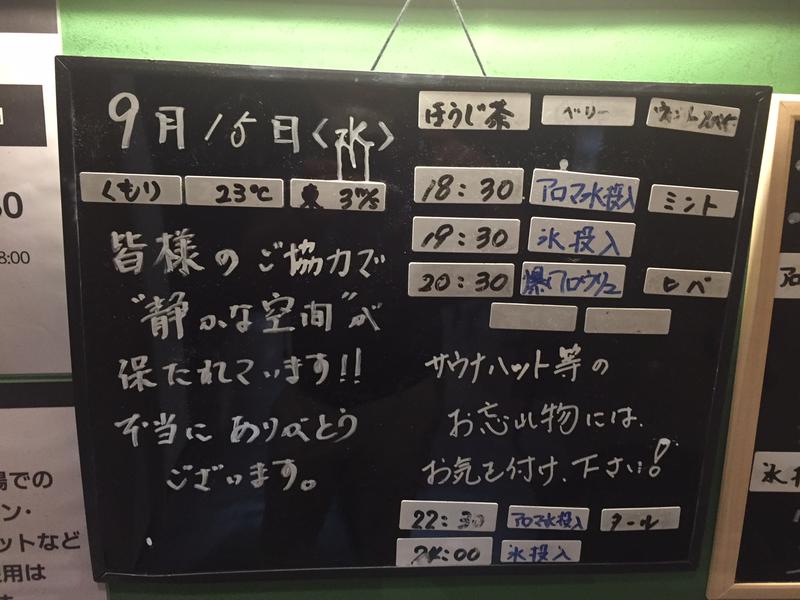 9月15日〈水〉
くもり 23℃ 東 3m/s
皆様のご協力で
"静かな空間"が
保たれています!!
本当にありがとう
ございます。
ほうじ茶 ベリー
18:30 アロマ水投入 ミント
19:30 氷投入
20:30 爆アロウリュ
サウナハット等の
お忘れ物には、
お気を付け、下さい!
22:30 アロマ水投入 タール
24:00 氷投入
8:00
場での
ン・
ットなど
用は